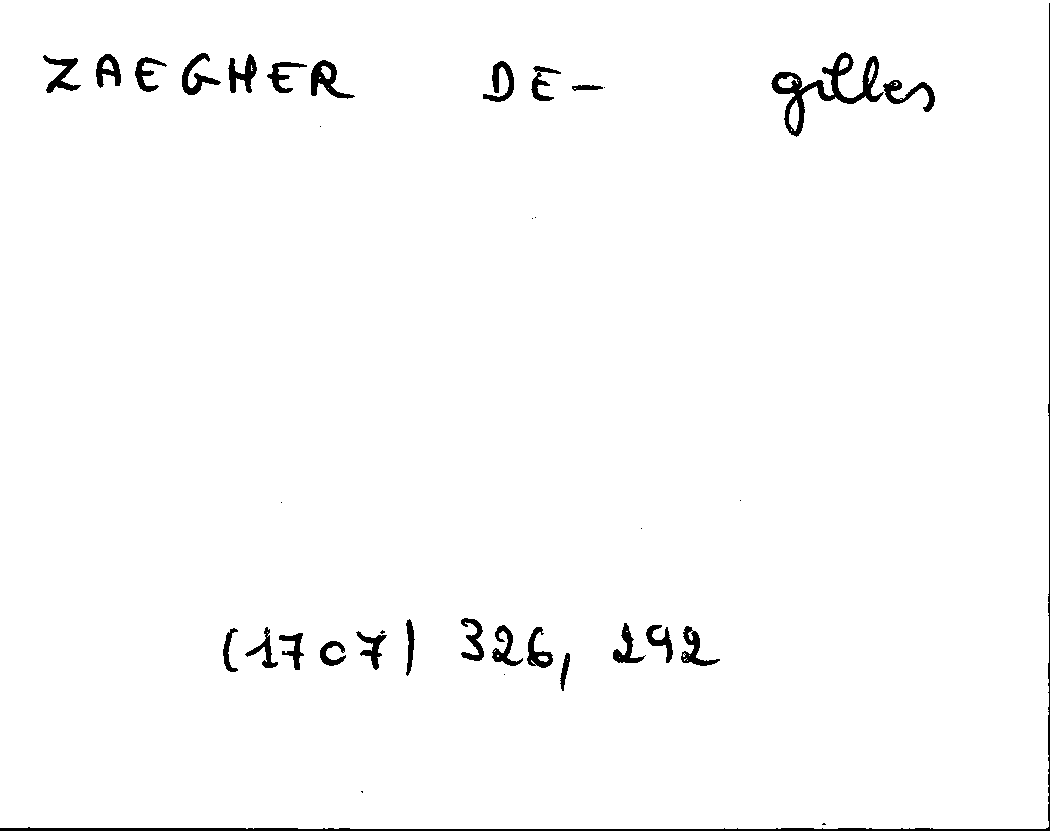 ZAEGHER DE- gilles
(1707) 326, 292